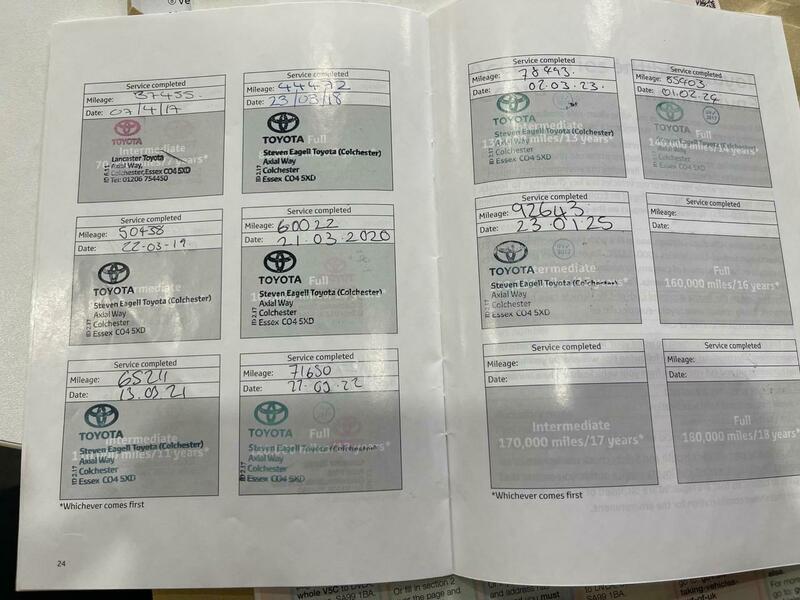 Service completed
Mileage: 37455.
Date: 07/4/17
TOYOTA
Intermediate
Lancaster Toyota
Axial Way,
Colchester, Essex CO4 5XD
Tel: 01206 754450
Service completed
Mileage: 44472
Date: 23/03/18
TOYOTA
Full
Steven Eagell Toyota (Colchester)
Axial Way
Colchester
Essex CO4 5XD
Service completed
Mileage: 50458
Date: 22-03-19
TOYOTA
Intermediate
Steven Eagell Toyota (Colchester)
Axial Way
Colchester
Essex CO4 5XD
Service completed
Mileage: 60022
Date: 21.03.2020
TOYOTA
Full
Steven Eagell Toyota (Colchester)
Axial Way
Colchester
Essex CO4 5XD
Service completed
Mileage: 65211
Date: 13.03 21
TOYOTA
Intermediate
Steven Eagell Toyota (Colchester)
Axial Way
Colchester
Essex CO4 5XD
Service completed
Mileage: 71650
Date: 22.03.22
TOYOTA
Full
Steven Eagell Toyota (Colchester)
Axial Way
Colchester
Essex CO4 5XD
*Whichever comes first
24
Service completed
Mileage: 78493.
Date: 02.03.23.
TOYOTA
Intermediate
Steven Eagell Toyota (Colchester)
Axial Way
Colchester
Essex CO4 5XD
Service completed
Mileage: 85403
Date: 01.02.24
TOYOTA
Full
140,000 miles/14 years*
Service completed
Mileage: 92643
Date: 23.01.25
TOYOTA
Intermediate
Steven Eagell Toyota (Colchester)
Axial Way
Colchester
Essex CO4 5XD
Service completed
Mileage:
Date:
Full
160,000 miles/16 years*
Service completed
Mileage:
Date:
Intermediate
170,000 miles/17 years*
Service completed
Mileage:
Date:
Full
180,000 miles/18 years*
*Whichever comes first